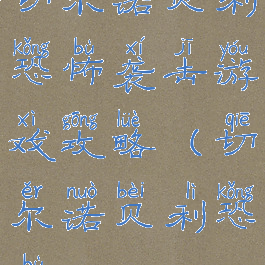 切尔诺贝利
kǒng bù xí jī yóu
恐怖袭击游
xì gōng lüè ( qiē
戏攻略(切
ěr nuò bèi lì kǒng
尔诺贝利恐
bù